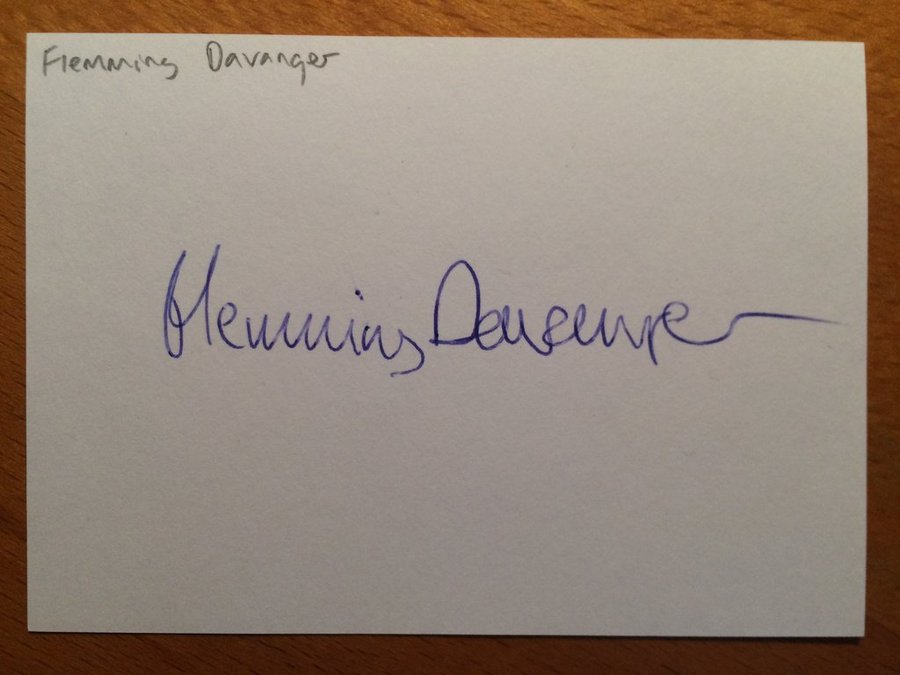 Flemming Davanger
Flemming Davanger